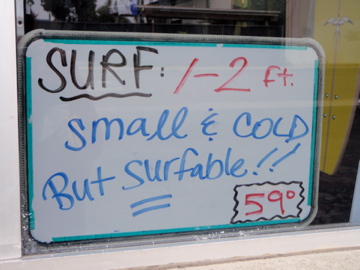 SURF: 1-2 ft.
small & COLD
But surfable!!
59°